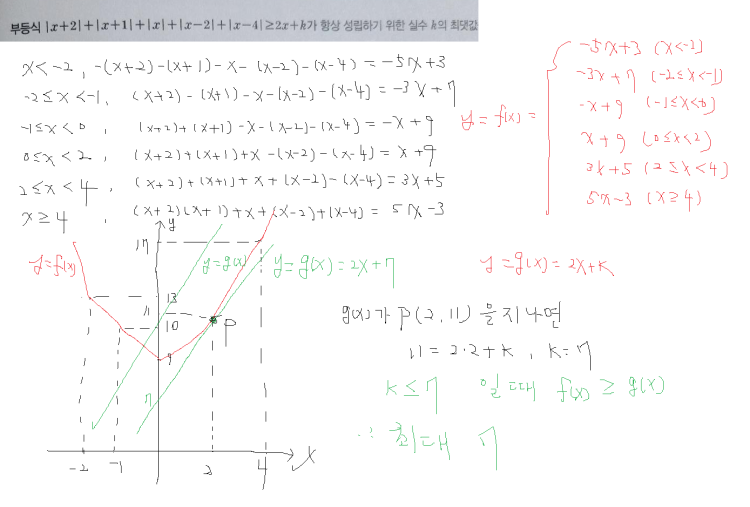 부등식 |x+2|+|x+1|+|x|+|x-2|+|x-4|≥2x+k가 항상 성립하기 위한 실수 k의 최댓값
x<-2, -(x+2)-(x+1)-x-(x-2)-(x-4) = -5x+3
-2≤x<-1, (x+2)-(x+1)-x-(x-2)-(x-4) = -3x+7
-1≤x<0, (x+2)+(x+1)-x-(x-2)-(x-4) = -x+9
0≤x<2, (x+2)+(x+1)+x-(x-2)-(x-4) = x+9
2≤x<4, (x+2)+(x+1)+x+(x-2)-(x-4) = 3x+5
x≥4, (x+2)(x+1)+x+(x-2)+(x-4) = 5x-3
y = f(x) =
-5x+3 (x<-2)
-3x+7 (-2≤x<-1)
-x+9 (-1≤x<0)
x+9 (0≤x<2)
3x+5 (2≤x<4)
5x-3 (x≥4)
y
17
y=f(x)
y=g(x)
y=g(x)=2x+7
13
11
10
P
9
7
-2 -1 2 4 x
y=g(x)=2x+k
g(x)가 P(2,11)을 지나면
11=2·2+k, k=7
k≤7 일때 f(x)≥g(x)
∴ 최대 7